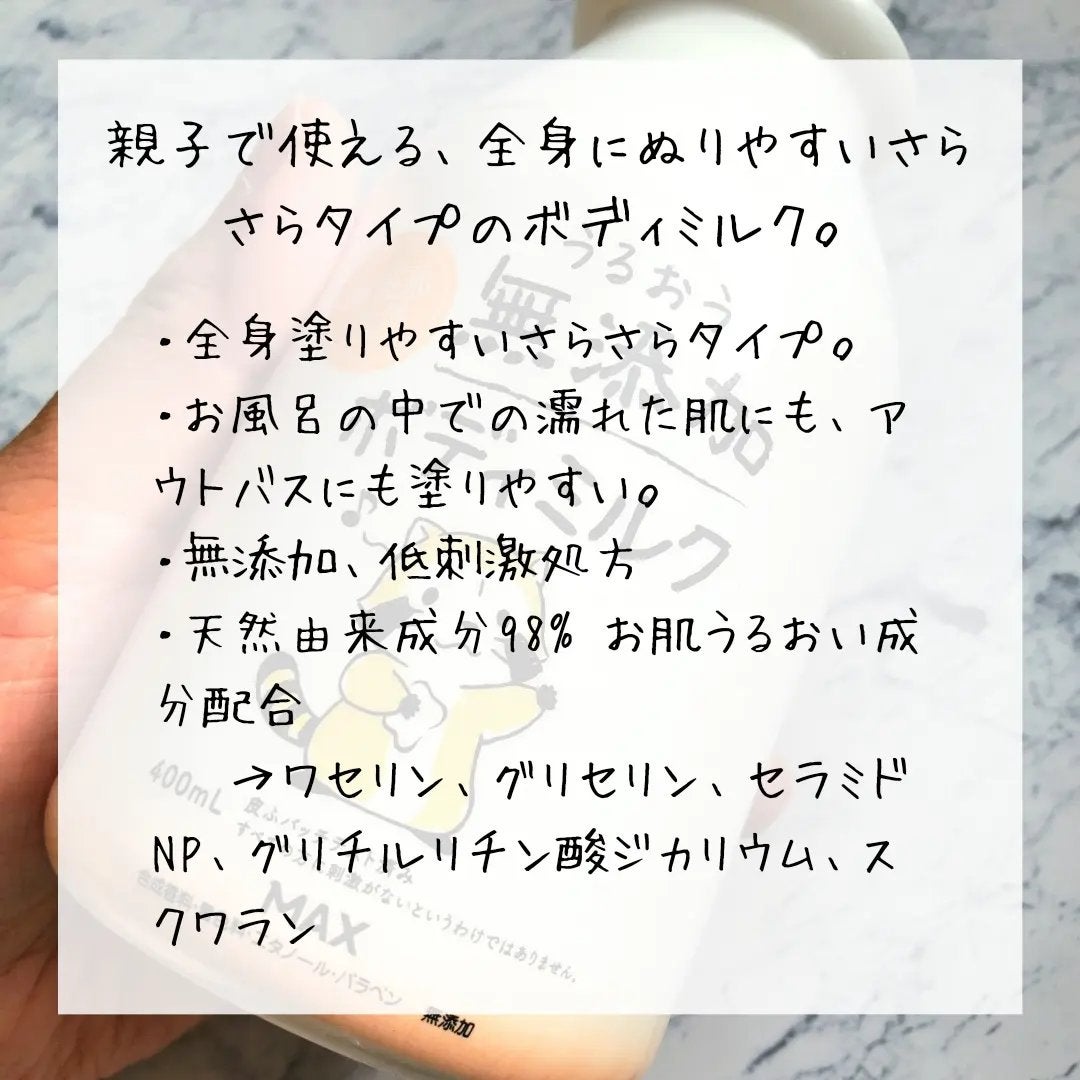 親子で使える、全身にぬりやすいさら
さらタイプのボディミルク。
・全身塗りやすいさらさらタイプ。
・お風呂の中での濡れた肌にも、ア
ウトバスにも塗りやすい。
・無添加、低刺激処方
・天然由来成分98% お肌うるおい成
分配合
→ワセリン、グリセリン、セラミド
NP、グリチルリチン酸ジカリウム、ス
クワラン
うるおう
無添加
ボディミルク
400mL
食ふパッチテスト済み
すべての
刺激がないというわけではありません。
MAX
合成香料・
エタノール・パラベン
無添加